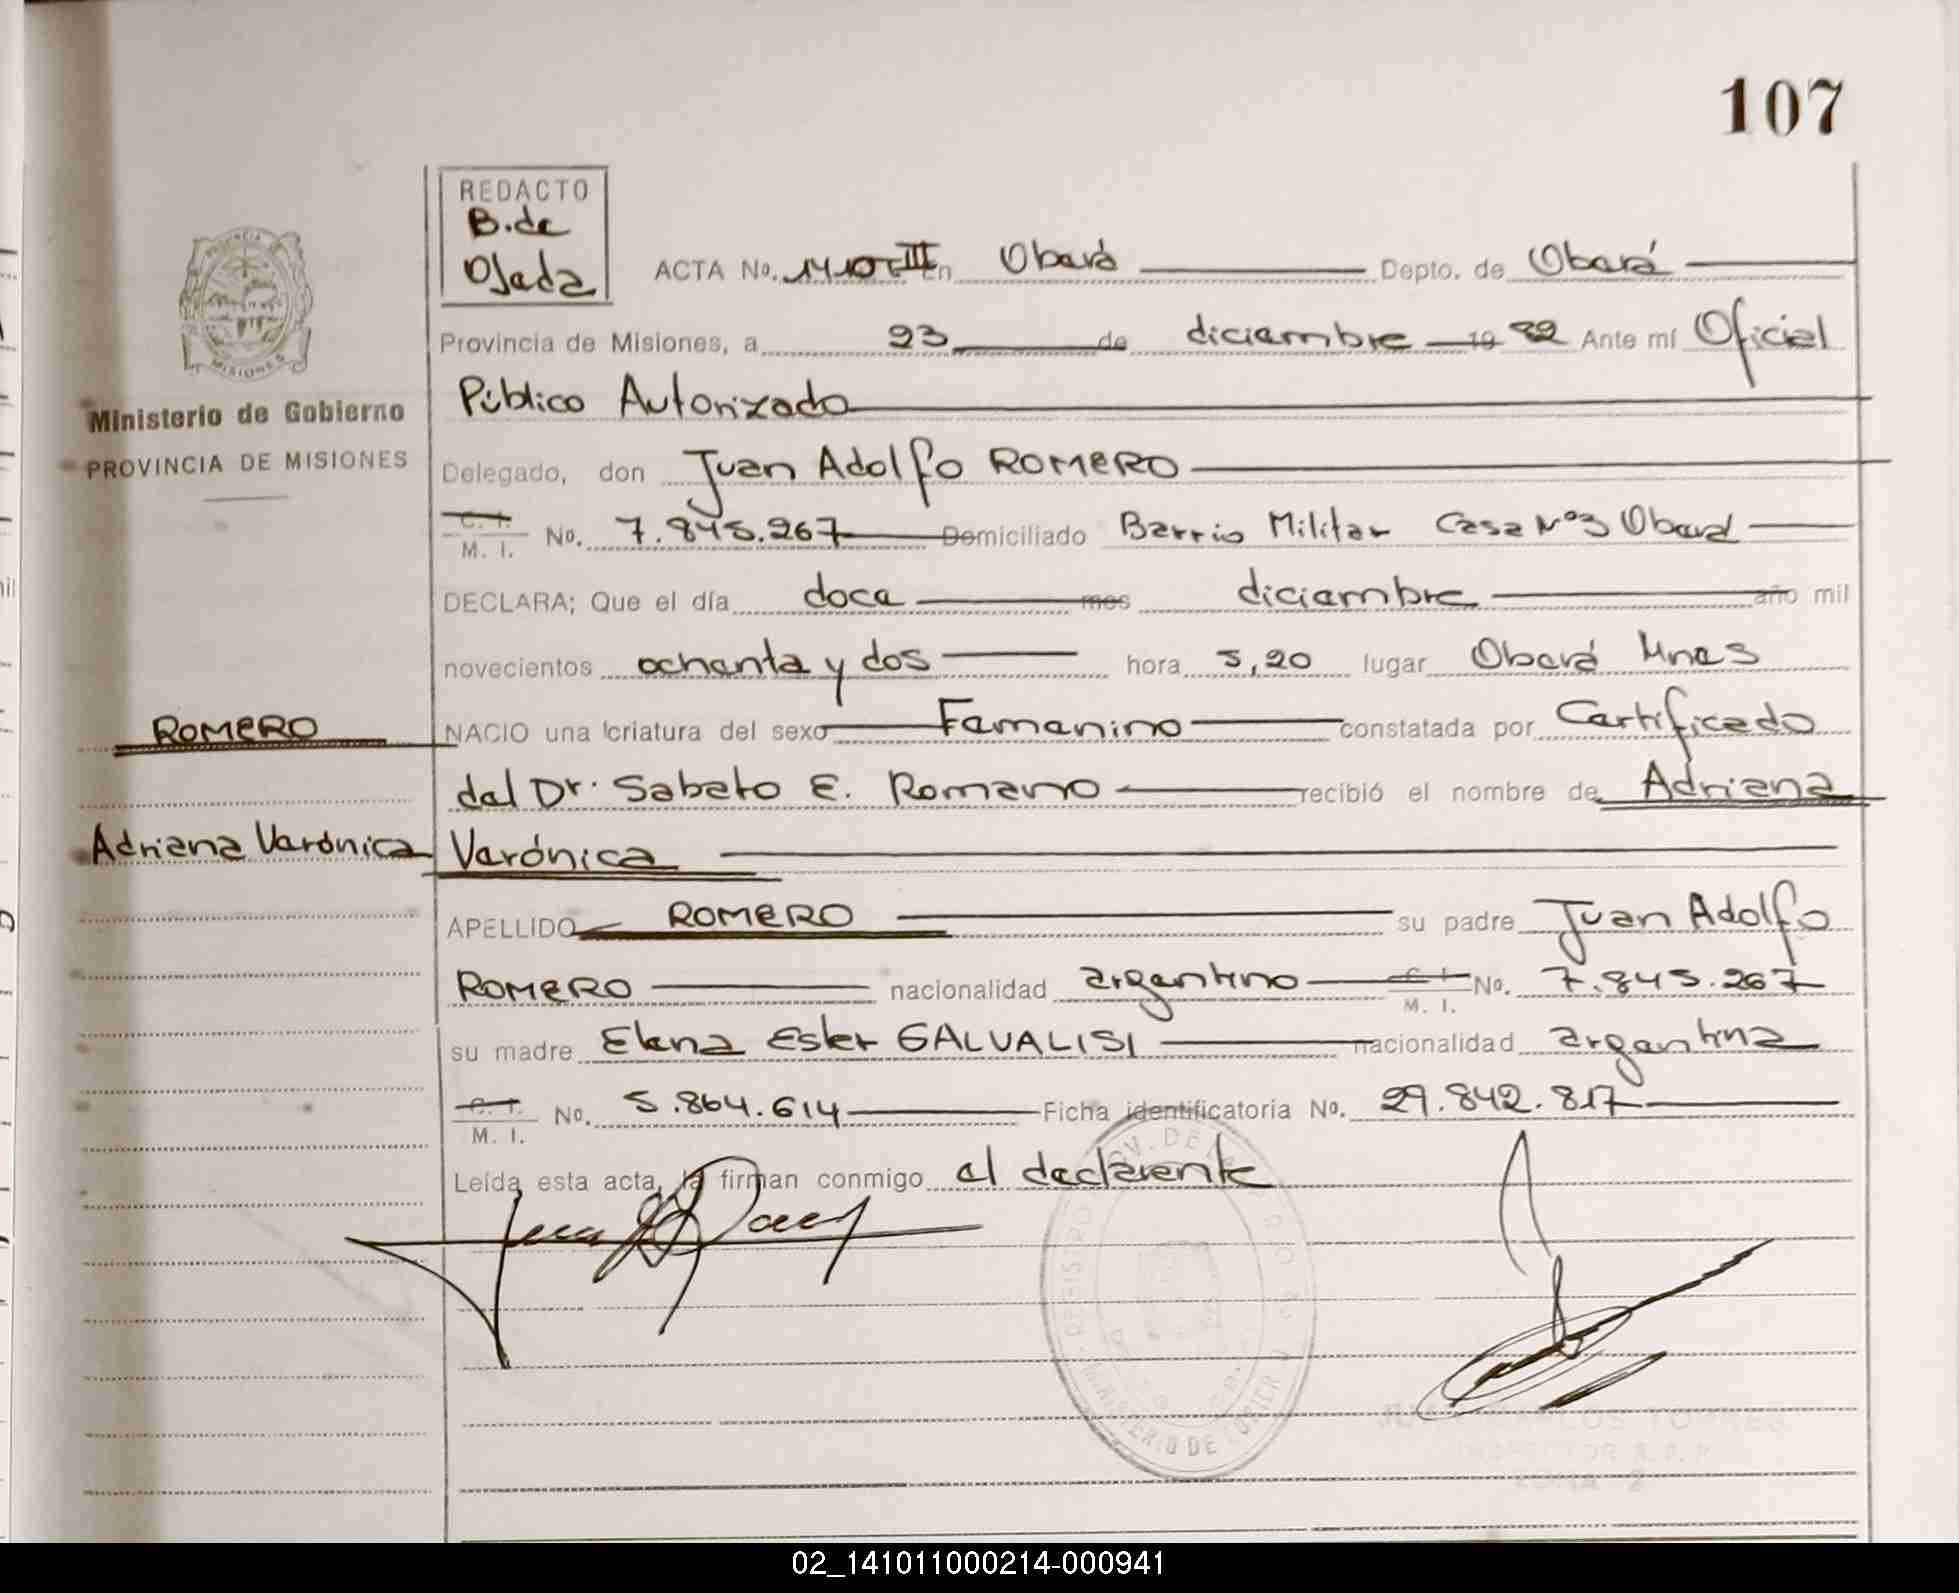 107
REDACTO
B. de
Ojeda
ACTA No. 1410-III En Oberá Depto. de Oberá
Provincia de Misiones, a 23 de diciembre 19 82 Ante mí Oficial
Público Autorizado
Ministerio de Gobierno
PROVINCIA DE MISIONES
Delegado, don Juan Adolfo ROMERO
C. I.
M. I. No. 7.845.267 Domiciliado Barrio Militar Casa Nº3 Oberá
DECLARA; Que el día doce mes diciembre año mil
novecientos ochenta y dos hora 5,20 lugar Oberá Mnes
ROMERO
NACIO una criatura del sexo Femenino constatada por Certificado
del Dr. Sabato E. Romano recibió el nombre de Adriana
Adriana Verónica
Verónica
APELLIDO ROMERO su padre Juan Adolfo
ROMERO nacionalidad argentino C. I. M. I. No. 7.845.267
su madre Elena Ester GALVALISI nacionalidad argentina
C. I.
M. I. No. 5.864.614 Ficha identificatoria No. 29.842.817
Leída esta acta, la firman conmigo el declarente
02_141011000214-000941